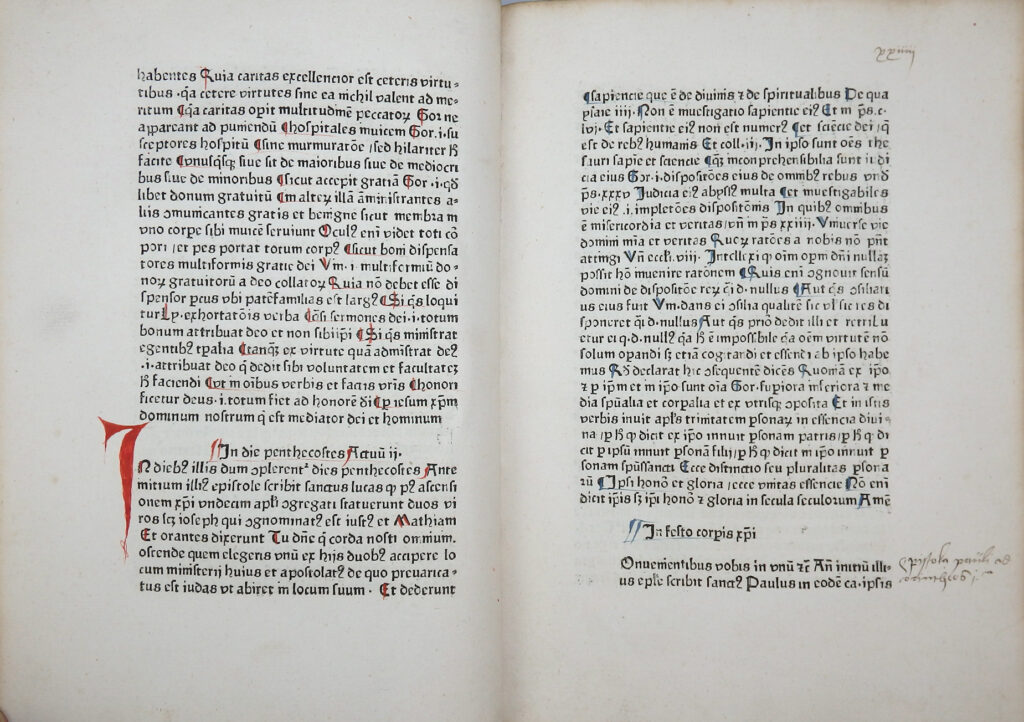 habentes Quia caritas excellencior est ceteris virtu-
tibus · q̄a cetere virtutes sine ea nichil valent ad me-
ritum ¶q̄a caritas opit multitudinē peccatoꝝ Gor ne
appareant ad puniendū ¶hospitales inuicem Gor · i · su
sceptores hospitū ¶sine murmuratōe / sed hilariter ꝶ
facite ¶vnusq̄sq̧ siue sit de maioribus siue de mediocri
bus siue de minoribus ¶sicut accepit gratiā Gor · i · qđ
libet donum gratuitū ¶in alteꝝ illā āministrantes a-
liis ɔmunicantes gratis et benigne sicut membra in
vno corpe sibi inuicē seruiunt Oculꝰ enī videt toti cō
pori / et pes portat totum corpꝰ ¶sicut boni dispensa
tores multiformis gratie dei Vm · i · multiformiū do-
noꝝ gratuitorū a deo collatoꝝ Quia nō debet esse di
spensor pcus vbi patēfamilias est largꝰ ¶Si q̄s loqui
tur Lp · exhortatōis verba ¶q̄si sermones dei · i · totum
bonum attribuat deo et non sibiipī ¶Si q̄s ministrat
egentibꝰ tpalia ¶tanq̄ ex virtute quā admīstrat deꝰ
· i · attribuat deo q̄ dedit sibi voluntatem et facultateꝫ
ꝶ faciendi ¶vt in oībus verbis et factis vr̄is ¶honori
ficetur deus · i · totum fiet ad honorē dī ¶p iesum xp̄m
dominum nostrum q̄ est mediator dei et hominum
¶In die penthecostes Actuū ij ·
IN diebꝰ illis dum ɔplerentᷣ dies penthecostes Ante
initium illiꝰ epistole scribit sanctus lucas ꝙ pꝰ ascensi
onem xpī vndecim apłi ɔgregati statuerunt duos vi
ros scꝫ ioseph qui ɔgnominatꝰ est iustꝰ et Mathiam
Et orantes dixerunt Tu dn̄e q̄ corda nosti omnium ·
ostende quem elegeris vnū ex hijs duobꝰ accipere lo
cum ministerij huius et apostolatꝰ de quo preuarica-
tus est iudas vt abiret in locum suum · Et dederunt
xxiiii
¶sapiencie que ē de diuinis ⁊ de spiritualibus De qua
ysaie iiij · Non ē inuestigatio sapientie eiꝰ Et in ps̄ · c ·
lvj · Et sapientie eiꝰ non est numerꝰ ¶et sciēcie dei / q̄
est de rebꝰ humanis Et coll · ij · In ipso sunt oēs the
sauri sapīe et sciencie ¶q̄ꝫ inconprehensibilia sunt iudi
cia eius Gor · i · dispositōes eius de omnibꝰ rebus vnđ
ps̄ · xxxv Judicia eiꝰ abyssꝰ multa ¶et inuestigabiles
vie eiꝰ · i · impletōes dispositōnis In quibꝰ omnibus
ē misericordia et veritas / vn̄ in ps̄ xxiiij · Vniuerse vie
domini mīa et veritas Quaꝝ ratōes a nobis nō pn̄t
attingi Vn̄ eccł · viij · Intellexi ꝙ oīm opꝝ dn̄i nullaꝫ
possit hō inuenire ratōnem ¶Quis enī ɔgnouit sensū
domini de dispositōe reꝝ q · d · nullus ¶Aut q̄s ɔsiliari
us eius fuit Vm · dans ei ɔsilia qualitē sic vł sic res di
sponeret q · d · nullus Aut q̄s prio dedit illi et retribu
etur ei q · d · nullꝰ q̄a ꝶ ē impossibile q̄a oēm virtutē nō
solum operandi sꝫ etiā cogitandi et essendi ab ipso habe
mus Qđ declarat hic ɔsequentē dicēs Quoniā ex ipo
⁊ p ipm et in ipo sunt oīa Gor · supiora inferiora ⁊ me
dia spūalia et corpalia et ex vtrisq̧ ɔposita Et in istis
verbis inuit apłs trinitatem psonaꝝ in essencia diui-
na / p ꝶ ꝙ dicit ex ipo innuit psonam patris / p ꝶ ꝙ di
cit p ipsū innuit psonam filij / p ꝶ ꝙ dicit in ipo innuit p
sonam spūssancti Ecce distinctio seu pluralitas psona
rū ¶Ipsi honō et gloria / ecce vnitas essencie Nō enī
dicit ipīs sꝫ ipī honō ⁊ gloria in secula seculorum Amē
¶In festo corpis xpī
Onuenientibus vobis in vnū ⁊c̄ An̄ initiū illi-
us epłe scribit sanctꝰ Paulus in eodē ca · ipsis
Epistola pauli ad
corintheos j ·